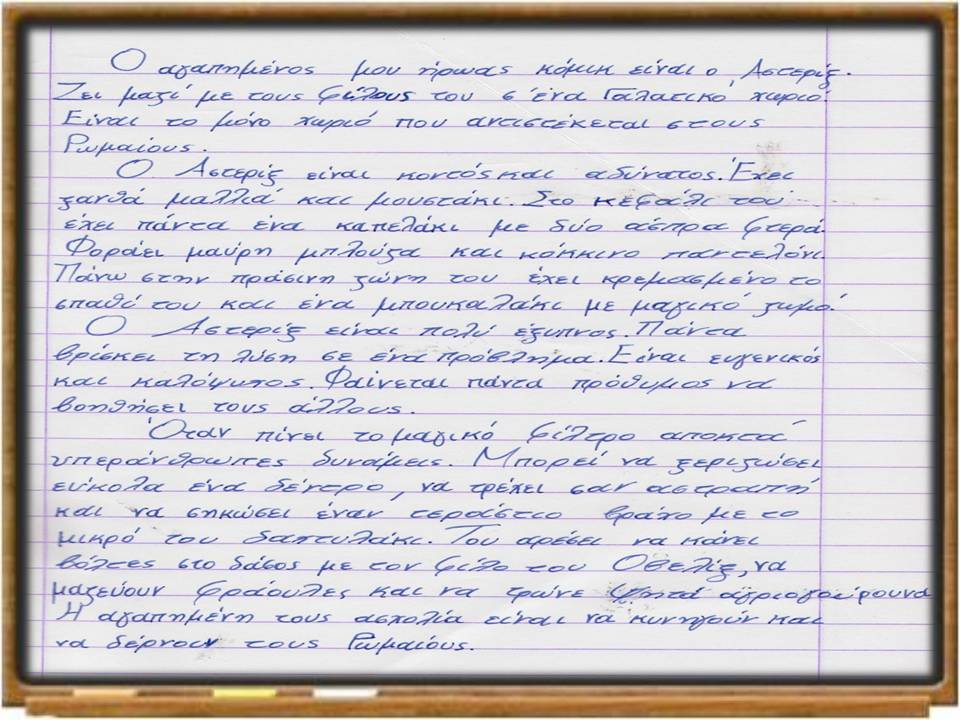 Ο αγαπημένος μου ήρωας κόμικ είναι ο Αστερίξ.
Ζει μαζί με τους φίλους του σ ένα Γαλατικό χωριό.
Είναι το μόνο χωριό που αντιστέκεται στους
Ρωμαίους.
Ο Αστερίξ είναι κοντός και αδύνατος. Έχει
ξανθά μαλλιά και μουστάκι. Στο κεφάλι του
έχει πάντα ένα καπελάκι με δύο άσπρα φτερά.
Φοράει μαύρη μπλούζα και κόκκινο παντελόνι.
Πάνω στην πράσινη ζώνη του έχει κρεμασμένο το
σπαθί του και ένα μπουκαλάκι με μαγικό ζωμό.
Ο Αστερίξ είναι πολύ έξυπνος. Πάντα
βρίσκει τη λύση σε ένα πρόβλημα. Είναι ευγενικός
και καλόψυχος. Φαίνεται πάντα πρόθυμος να
βοηθήσει τους άλλους.
Όταν πίνει το μαγικό φίλτρο αποκτά
υπεράνθρωπες δυνάμεις. Μπορεί να ξεριζώσει
εύκολα ένα δέντρο, να τρέχει σαν αστραπή
και να σηκώσει έναν τεράστιο βράχο με το
μικρό του δαχτυλάκι. Του αρέσει να κάνει
βόλτες στο δάσος με τον φίλο του Οβελίξ, να
μαζεύουν φράουλες και να τρώνε ψητά αγριογούρουνα
Η αγαπημένη τους ασχολία είναι να κυνηγούν και
να δέρνουν τους Ρωμαίους.